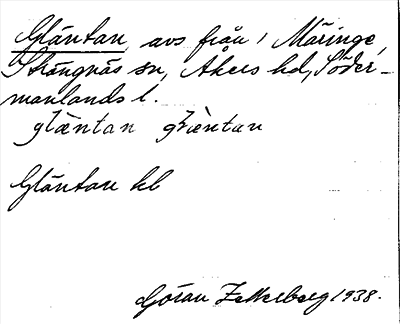 Gläntan, avs från 1 Märinge,
Strängnäs sn, Åkers hd, Söder-
manlands l.
glæntan glæ̀ntan
Gläntan kb
Göran Zetterberg 1938.